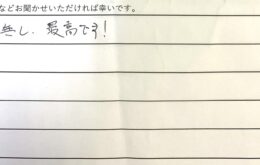 などお聞かせいただければ幸いです。
無し、最高です!